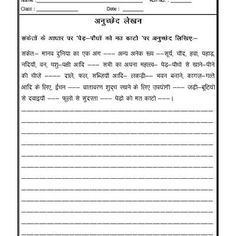 Class : Date :
अनुच्छेद लेखन
संकेतों के आधार पर 'पेड़-पौधों को मत काटो' पर अनुच्छेद लिखिए:-
संकेत- मानव दुनिया का एक अंग --- अन्य अनेक रूप --सूर्य, चाँद, हवा, पहाड़,
नदियाँ, वन, पशु-पक्षी आदि --- सभी का अपना महत्त्व- पेड़-पौधों से खाने-पीने
की चीजें ---- दालें, फल, सब्जियाँ आदि- लकड़ी--- भवन बनाने, कागज़-गत्ते
आदि के लिए, ईंधन --- वातावरण शुद्ध रखने के लिए उपयोगी ---- जड़ी-बूटियों
से दवाइयाँ --- फूलों से सुंदरता ---- पेड़ों को मत काटो।